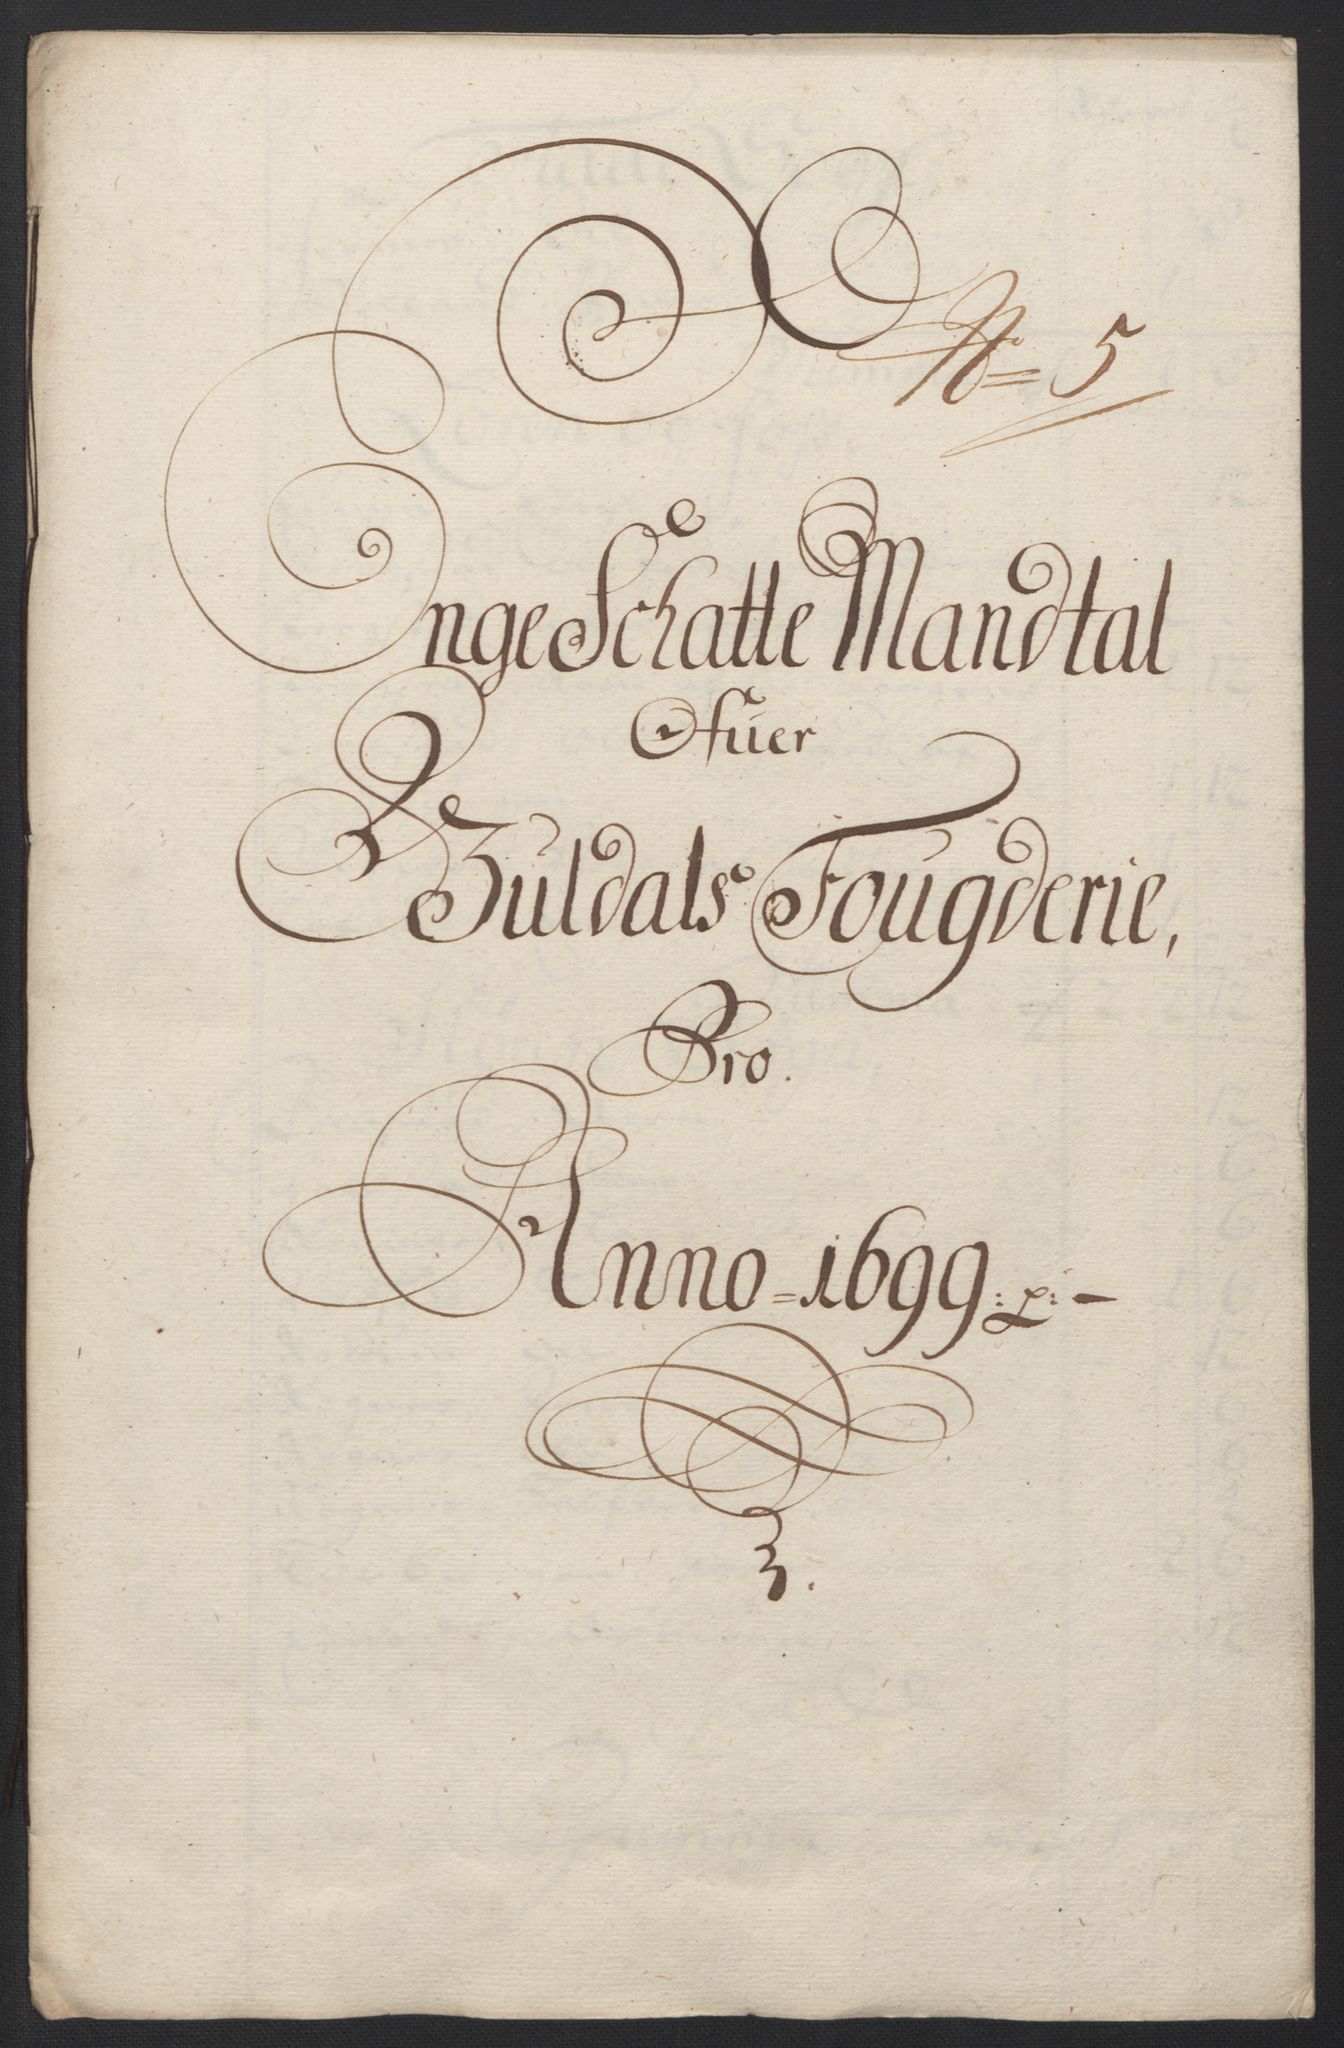 No 5
EngeSchatte Mandtal
Ofuer
Guldals Fougderie,
Pro.
Anno = 1699
3.